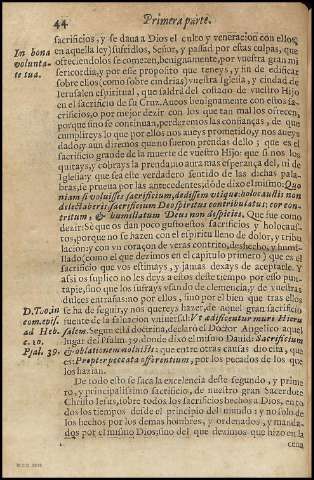 44
Primera parte.
sacrificios, y se daua a Dios el culto y veneracion con ellos
In bona
en aquella ley) sufridlos, Señor, y passad por estas culpas, que
volunta-
ofreciendolos se comezen, benignamente, por vuestra gran mi
te tua.
sericordia, y por esse proposito que teneys, y fin de edificar
sobre ellos (como sobre
vuestra Iglesia, y ciudad de
Jerusalen espiritual, que saldrà del costado de vuestro Hijo
en el sacrificio de su Cruz. Aueos benignamente con estos sa-
crificios, o por mejor dezir con los que tan mal los ofrecen,
porque sino se continuan, perderemos las confianças, de que
cumplireys lo que por ellos nos aueys prometido, y nos aueys
dado, y aun diremos que no fueron prendas dello; que es el
sacrificio grande de la muerte de vuestro Hijo: que si nos los
quitays, y cobrays la prenda, no aurà mas esperança del, ni de
Iglesia: y que sea este verdadero sentido de las dichas pala-
bras, se prueua por las antecedentes, dõde dixo el mismo: Quo
niam si voluisses sacrificium, dedissem vtique: holocaustis non
delectaberis: sacrificium Deo spiritus contribulatus: cor con-
tritum, & humiliatum Deus non despicies. Que fue como
dezir: Sè que os dan poco gusto estos sacrificios y holocaus-
tos, porque no se hazen con el espiritu lleno de dolor, y tribu
lacion: y con vn coraçon de veras contrito, deshecho, y humi-
llado, (como el que dezimos en el capitulo primero) que es el
sacrificio que vos estimays, y jamas dexays de aceptarle. Y
assi os suplico no les deys a ellos deste tiempo por esto pun-
tapie, sino que los sufrays vsando de clemencia, y de vuestras
dulces entrañas: no por ellos, sino por el bien que tras ellos
D. Tho. in
se ha de seguir, y nos quereys hazer, de aquel gran sacrificio
com. epist.
fuente de la saluacion vniuersal: Vt aedificentur muri Hieru
ad Heb.
salem. Segun està doctrina, declarò el Doctor Angelico aquel
c. 10.
lugar del Psalm. 39. donde dixo el mismo Dauid: Sacrificium
Psal. 39.
& oblationem noluisti: que entre otras causas dio esta, que
es: Propter peccata offerentium, por los pecados de los que
los hazian.
De todo esto se saca la excelencia deste segundo, y prime
ro, y principalissimo sacrificio, de nuestro gran Sacerdote
Christo Iesus, sobre todos los sacrificios hechos a Dios, en to-
dos los tiempos desde el principio del mundo: y no solo de
los hechos por los demas hombres, y ordenados, y manda-
dos por el mismo Dios; sino del que dezimos que hizo en la
cena